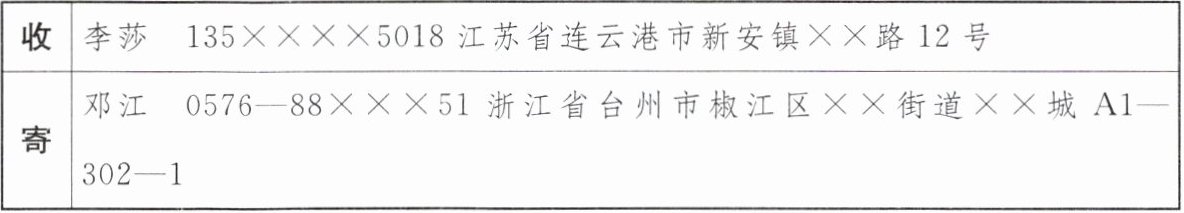 收 李莎 135××××5018江苏省连云港市新安镇××路12号
寄 邓江 0576—88×××51浙江省台州市椒江区××街道××城 A1—
302—1